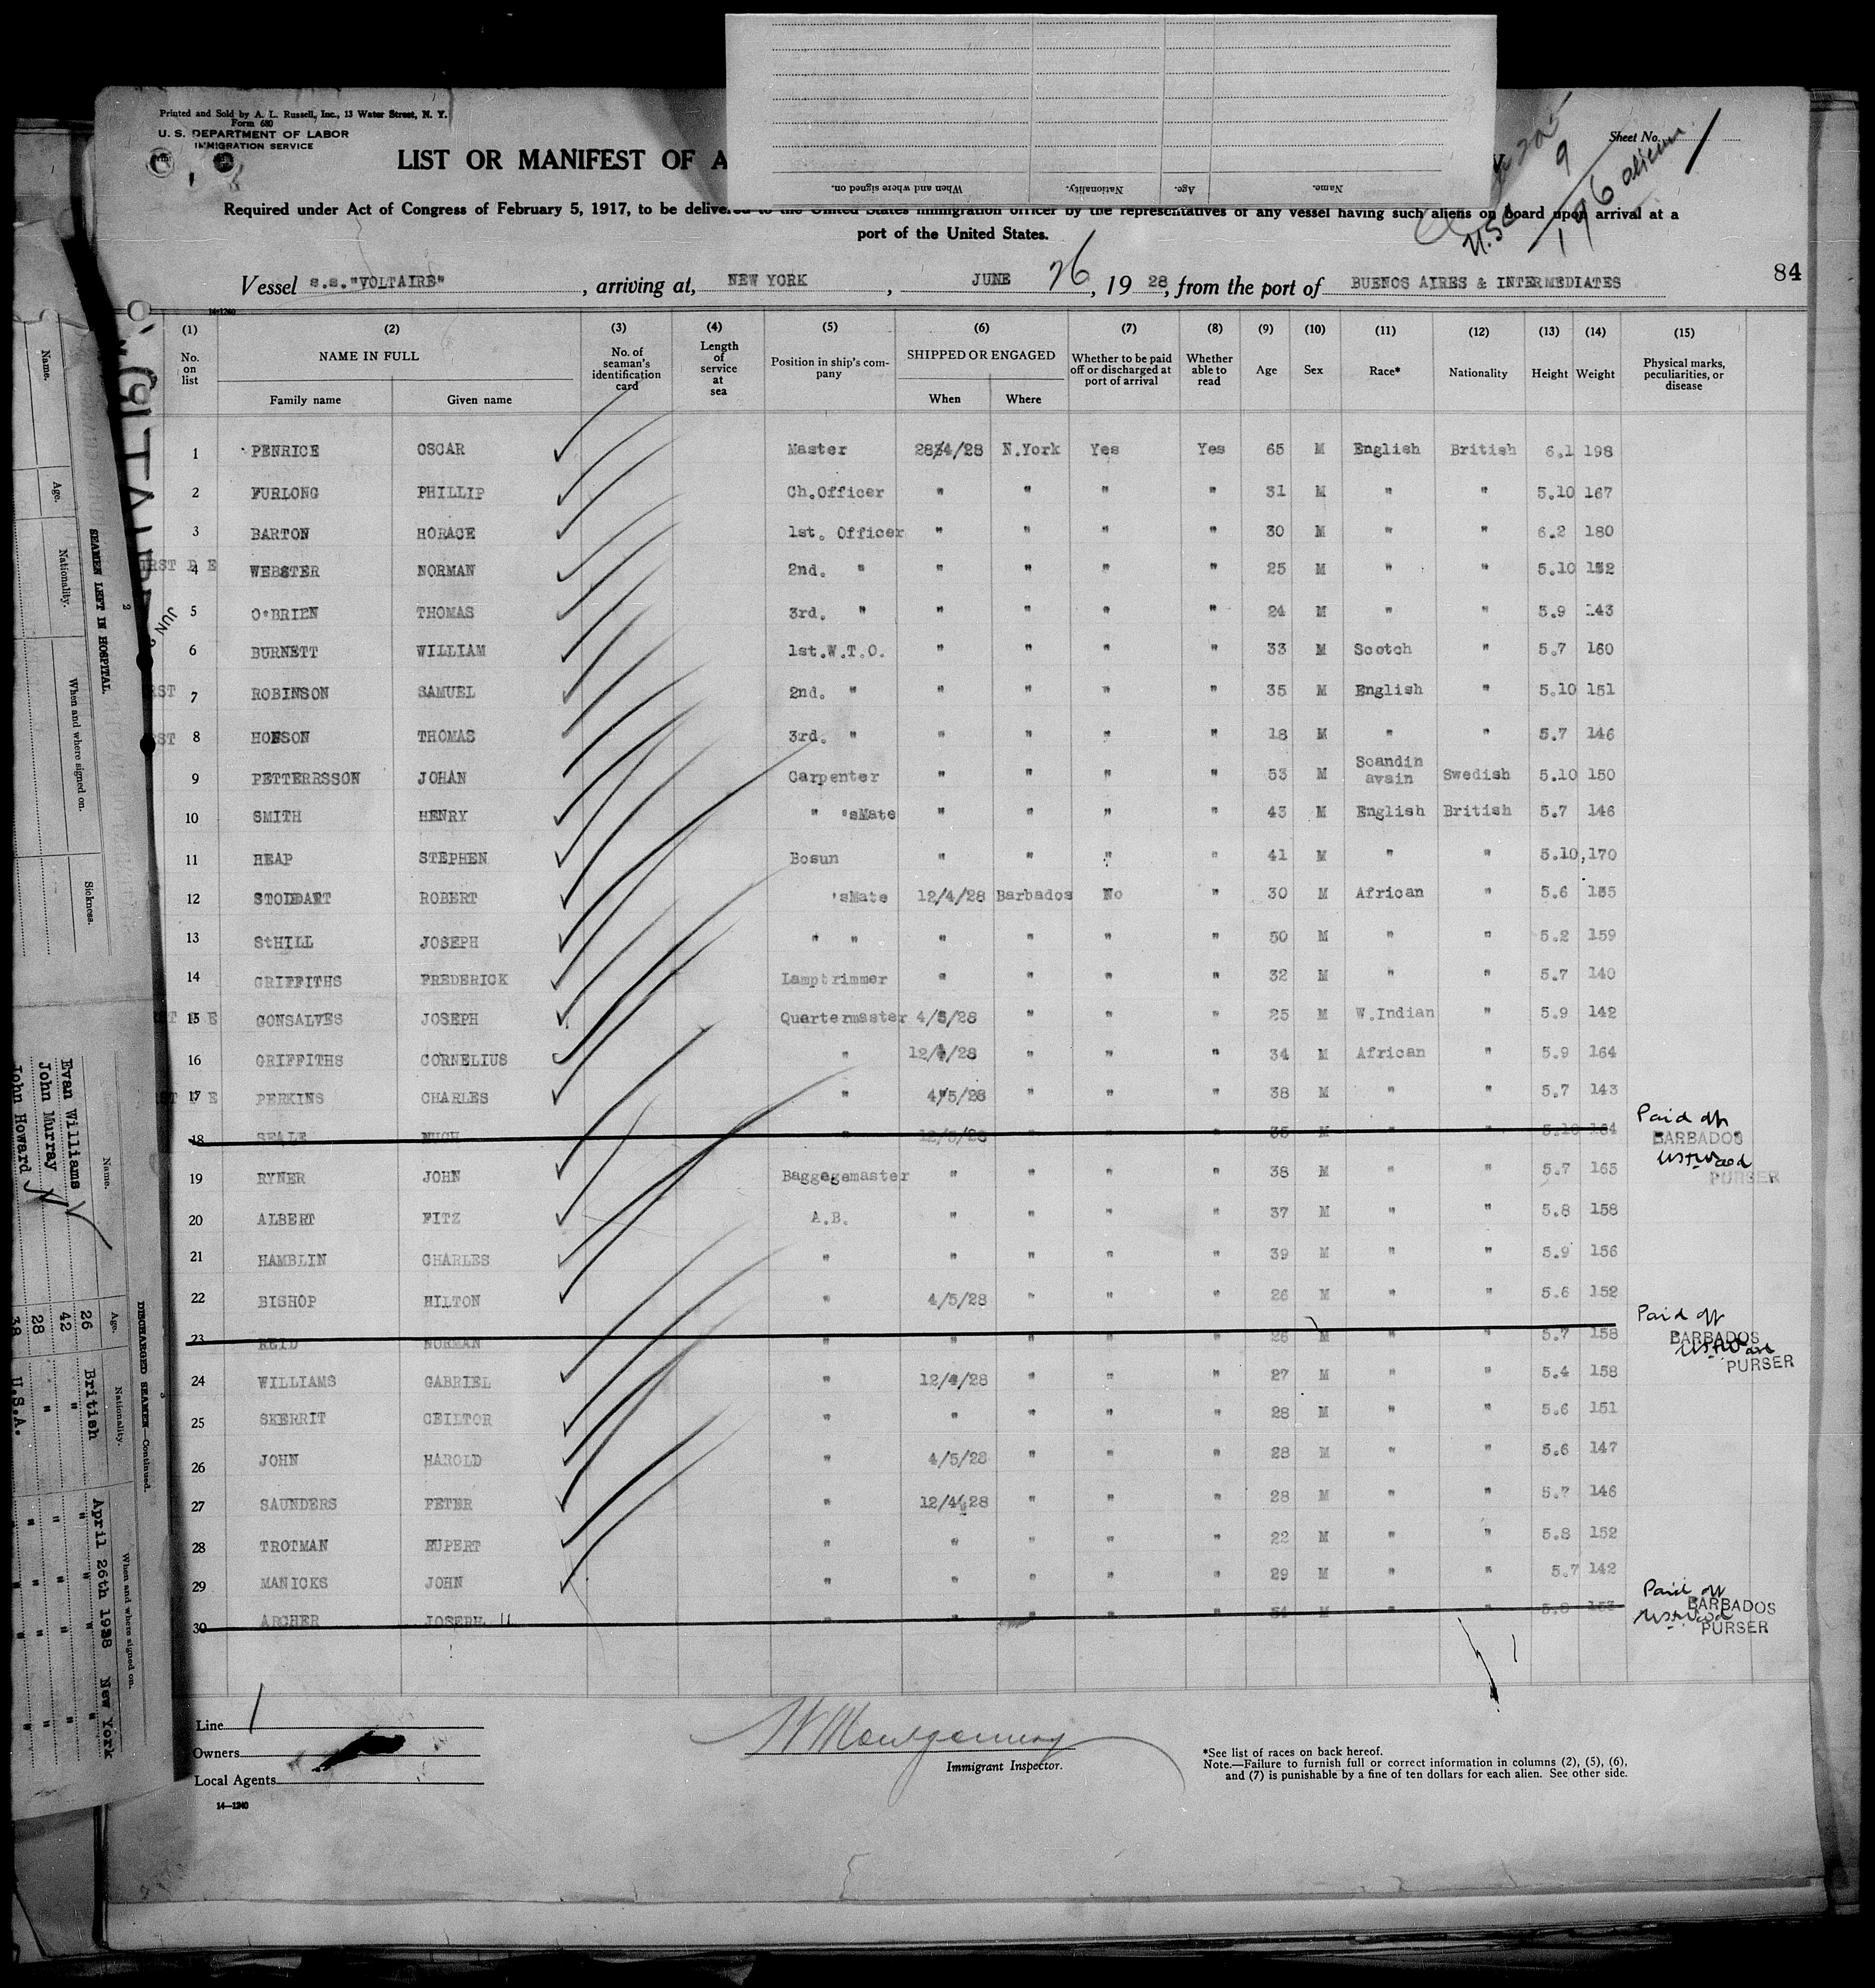 Printed and Sold by A. L. Russell, Inc., 13 Water Street, N. Y.
Form 680
U. S. DEPARTMENT OF LABOR
IMMIGRATION SERVICE
LIST OR MANIFEST OF A
Name. Age. Nationality. When and where signed on.
Sheet No. 1
U.S.C. 9
196 aliens
Required under Act of Congress of February 5, 1917, to be delivered to the United States immigration officer by the representatives of any vessel having such aliens on board upon arrival at a
port of the United States.
Vessel s.s."VOLTAIRE", arriving at, NEW YORK, JUNE 26, 1928, from the port of BUENOS AIRES & INTERMEDIATES
84
14-1240
(1) (2) (3) (4) (5) (6) (7) (8) (9) (10) (11) (12) (13) (14) (15)
No. on list NAME IN FULL Family name Given name No. of seaman's identification card Length of service at sea Position in ship's company SHIPPED OR ENGAGED When Where Whether to be paid off or discharged at port of arrival Whether able to read Age Sex Race* Nationality Height Weight Physical marks, peculiarities, or disease
1 PENRICE OSCAR Master 28/4/28 N.York Yes Yes 65 M English British 6.1 198
2 FURLONG PHILLIP Ch.Officer " " " " 31 M " " 5.10 167
3 BARTON HORACE 1st. Officer " " " " 30 M " " 6.2 180
4 WEBSTER NORMAN 2nd. " " " " " 25 M " " 5.10 152
5 O'BRIEN THOMAS 3rd. " " " " " 24 M " " 5.9 143
6 BURNETT WILLIAM 1st.W.T.O. " " " " 33 M Scotch " 5.7 160
7 ROBINSON SAMUEL 2nd. " " " " " 35 M English " 5.10 151
8 HOBSON THOMAS 3rd. " " " " " 18 M " " 5.7 146
9 PETTERRSSON JOHAN Carpenter " " " " 53 M Scandin avain Swedish 5.10 150
10 SMITH HENRY " 'sMate " " " " 43 M English British 5.7 146
11 HEAP STEPHEN Bosun " " " " 41 M " " 5.10 170
12 STODDART ROBERT 'sMate 12/4/28 Barbados No " 30 M African " 5.6 155
13 StHILL JOSEPH " " " " " " 50 M " " 5.2 159
14 GRIFFITHS FREDERICK Lamptrimmer " " " " 32 M " " 5.7 140
15 GONSALVES JOSEPH Quartermaster 4/5/28 " " " 25 M W.Indian " 5.9 142
16 GRIFFITHS CORNELIUS " 12/4/28 " " " 34 M African " 5.9 164
17 PERKINS CHARLES " 4/5/28 " " " 38 M " " 5.7 143
18 SEALE HUGH " 12/5/28 " " " 35 M " " 5.10 164 Paid off BARBADOS PURSER
19 RYNER JOHN Baggegemaster " " " " 38 M " " 5.7 165
20 ALBERT FITZ A.B. " " " " 37 M " " 5.8 158
21 HAMBLIN CHARLES " " " " " 39 M " " 5.9 156
22 BISHOP HILTON " 4/5/28 " " " 26 M " " 5.6 152
23 REID NORMAN " " " " " 26 M " " 5.7 158 Paid off BARBADOS PURSER
24 WILLIAMS GABRIEL " 12/4/28 " " " 27 M " " 5.4 158
25 SKERRIT CEILTOR " " " " " 28 M " " 5.6 151
26 JOHN HAROLD " 4/5/28 " " " 28 M " " 5.6 147
27 SAUNDERS PETER " 12/4/28 " " " 28 M " " 5.7 146
28 TROTMAN RUPERT " " " " " 22 M " " 5.8 152
29 MANICKS JOHN " " " " " 29 M " " 5.7 142
30 ARCHER JOSEPH " " " " " M " " Paid off BARBADOS PURSER
Line 1
Owners
Local Agents
14—1240
W Montgomery
Immigrant Inspector.
*See list of races on back hereof.
Note.—Failure to furnish full or correct information in columns (2), (5), (6),
and (7) is punishable by a fine of ten dollars for each alien. See other side.
SEAMEN LEFT IN HOSPITAL.
2
Name. Age. Nationality. When and where signed on. Sickness.
DISCHARGED SEAMEN—Continued.
3
Name. Age. Nationality. When and where signed on.
Evan Williams 26 British April 26th 1928 New York
John Murray 42 " " " "
John Howard 28 " " " "
38 U.S.A. " " "